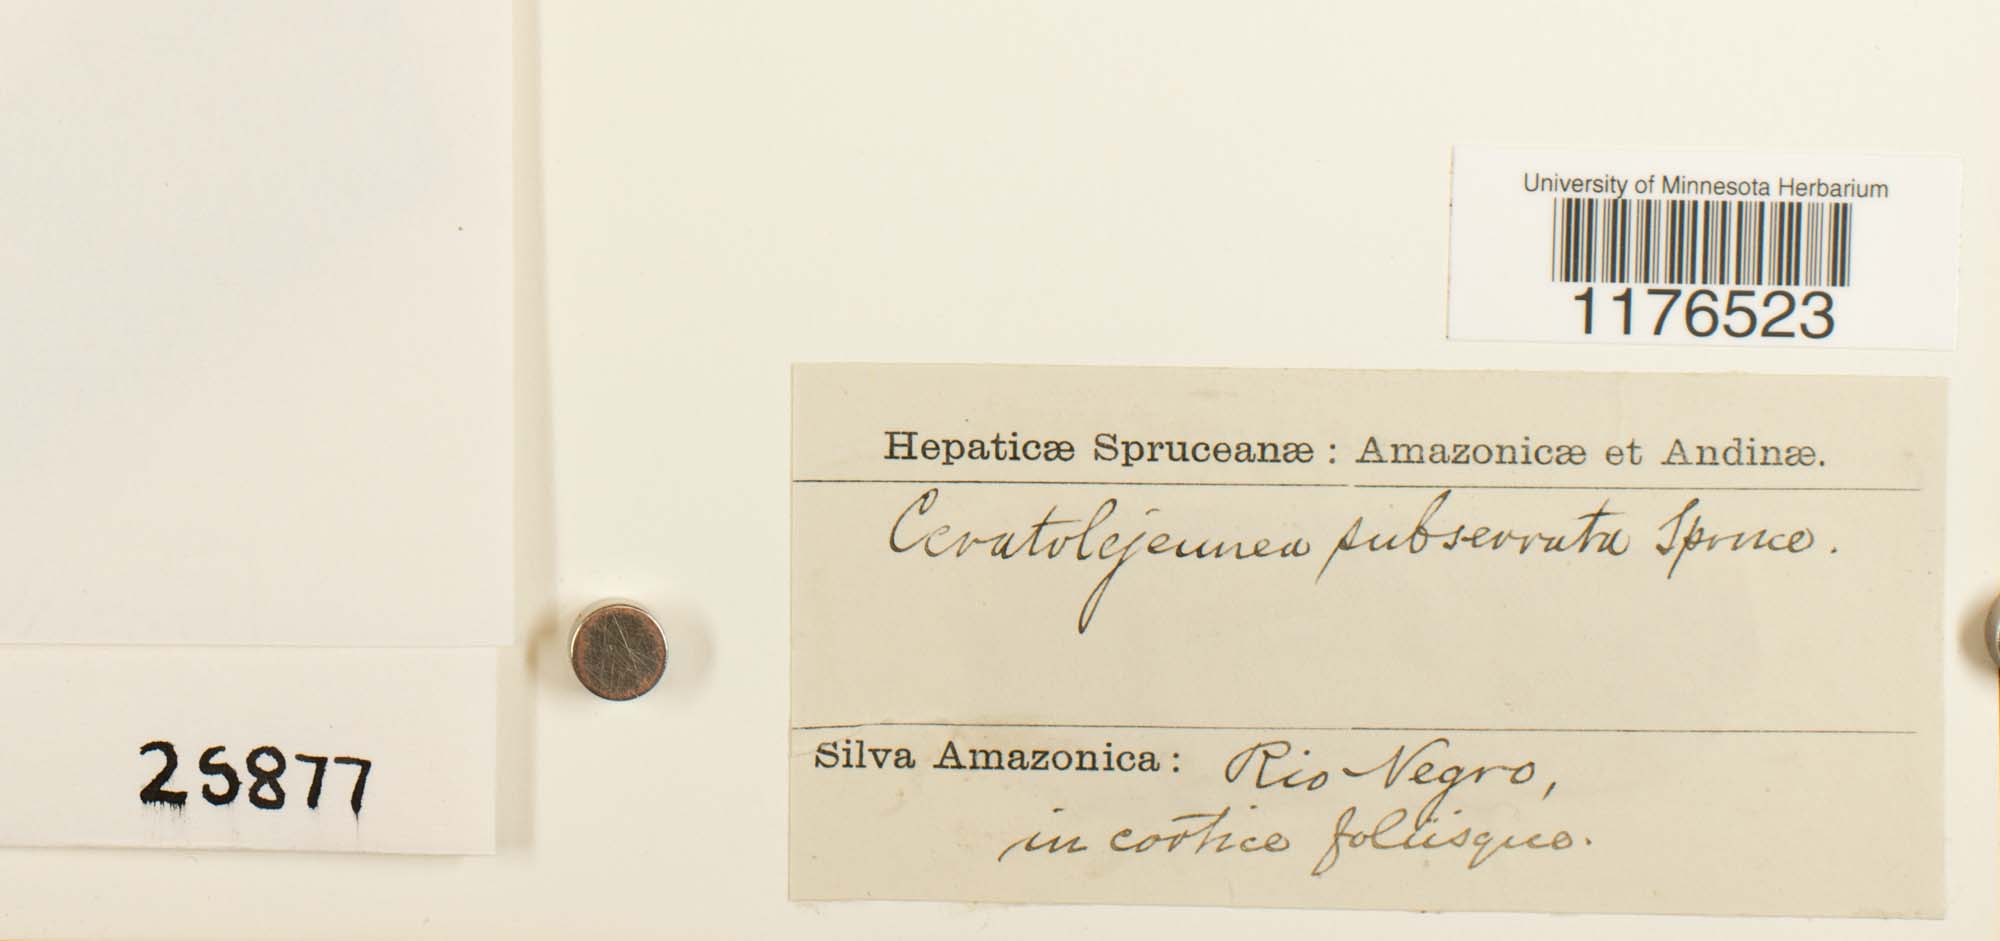 University of Minnesota Herbarium
1176523
Hepaticæ Spruceanæ : Amazonicæ et Andinæ.
Ceratolejeunea subserrata Spruce.
Silva Amazonica : Rio Negro,
in cortice foliisque.
25877